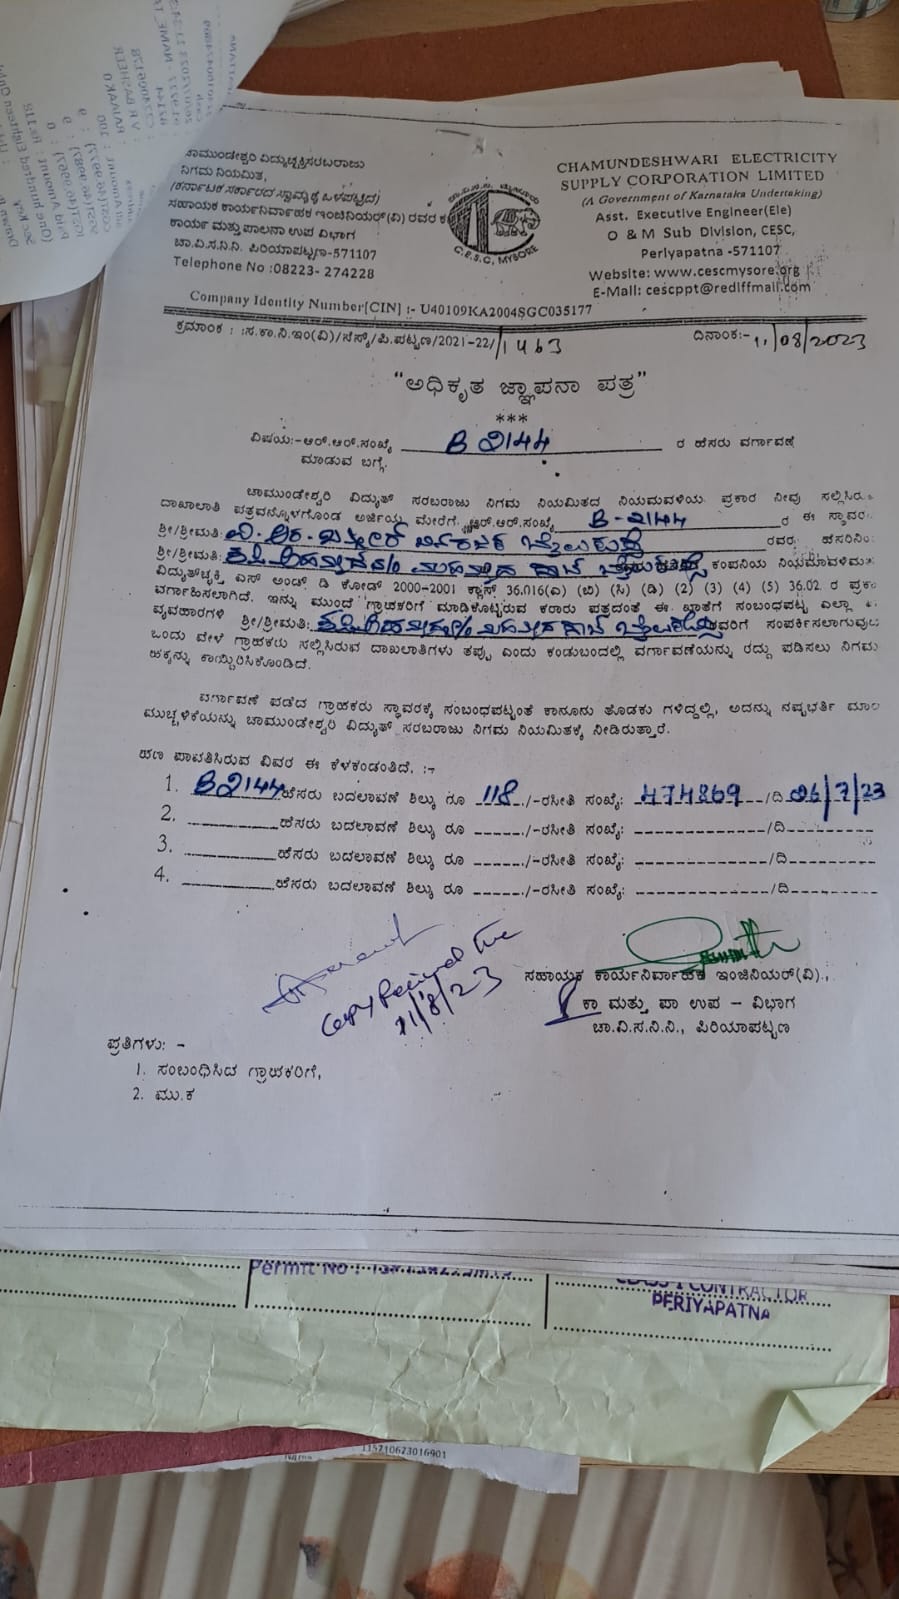 ಚಾಮುಂಡೇಶ್ವರಿ ವಿದ್ಯುಚ್ಛಕ್ತಿಸರಬರಾಜು
ನಿಗಮ ನಿಯಮಿತ,
(ಕರ್ನಾಟಕ ಸರ್ಕಾರದ ಸ್ವಾಮ್ಯಕ್ಕೆ ಒಳಪಟ್ಟಿದೆ)
ಸಹಾಯಕ ಕಾರ್ಯನಿರ್ವಾಹಕ ಇಂಜಿನಿಯರ್(ವಿ) ರವರ ಕ
ಕಾರ್ಯ ಮತ್ತು ಪಾಲನಾ ಉಪ ವಿಭಾಗ
ಚಾ.ವಿ.ಸ.ನಿ.ನಿ. ಪಿರಿಯಾಪಟ್ಟಣ-571107
Telephone No :08223- 274228
C.E.S.C, MYSORE
CHAMUNDESHWARI ELECTRICITY
SUPPLY CORPORATION LIMITED
(A Government of Karnataka Undertaking)
Asst. Executive Engineer(Ele)
O & M Sub Division, CESC,
Periyapatna -571107
Website: www.cescmysore.org
E-Mail: cescppt@rediffmail.com
Company Identity Number[CIN] :- U40109KA2004SGC035177
ಕ್ರಮಾಂಕ : :ಸ.ಕಾ.ನಿ.ಇಂ(ವಿ)/ಸೆಸ್ಕ್/ಪಿ.ಪಟ್ಟಣ/2021-22/1463 ದಿನಾಂಕ:-11/08/2023
"ಅಧಿಕೃತ ಜ್ಞಾಪನಾ ಪತ್ರ"
***
ವಿಷಯ:-ಆರ್.ಆರ್.ಸಂಖ್ಯೆ B 2144 ರ ಹೆಸರು ವರ್ಗಾವಣೆ
ಮಾಡುವ ಬಗ್ಗೆ.
ಚಾಮುಂಡೇಶ್ವರಿ ವಿದ್ಯುತ್ ಸರಬರಾಜು ನಿಗಮ ನಿಯಮಿತದ ನಿಯಮವಳಿಯ ಪ್ರಕಾರ ನೀವು ಸಲ್ಲಿಸಿರು
ದಾಖಲಾತಿ ಪತ್ರವನ್ನೊಳಗೊಂಡ ಅರ್ಜಿಯ ಮೇರೆಗೆ, ಆರ್.ಆರ್.ಸಂಖ್ಯೆ B-2144 ರ ಈ ಸ್ಥಾವರ
ಶ್ರೀ/ಶ್ರೀಮತಿ: ವಿ.ಆರ್. ರವರ ಹೆಸರಿನಿಂ
ಶ್ರೀ/ಶ್ರೀಮತಿ: ಕಂಪನಿಯ ನಿಯಮಾವಳಿಮ
ವಿದ್ಯುತ್‌ಚ್ಛಕ್ತಿ ಎಸ್ ಅಂಡ್ ಡಿ ಕೋಡ್ 2000-2001 ಕ್ಲಾಸ್ 36.016(ಎ) (ಬಿ) (ಸಿ) (ಡಿ) (2) (3) (4) (5) 36.02 ರ ಪ್ರಕ
ವರ್ಗಾಹಿಸಲಾಗಿದೆ. ಇನ್ನು ಮುಂದೆ ಗ್ರಾಹಕರಿಗೆ ಮಾಡಿಕೊಟ್ಟಿರುವ ಕರಾರು ಪತ್ರದಂತೆ ಈ ಖಾತೆಗೆ ಸಂಬಂಧಪಟ್ಟ ಎಲ್ಲಾ
ವ್ಯವಹಾರಗಳಿ ಶ್ರೀ/ಶ್ರೀಮತಿ: ರವರಿಗೆ ಸಂಪರ್ಕಿಸಲಾಗುವು
ಒಂದು ವೇಳೆ ಗ್ರಾಹಕರು ಸಲ್ಲಿಸಿರುವ ದಾಖಲಾತಿಗಳು ತಪ್ಪು ಎಂದು ಕಂಡುಬಂದಲ್ಲಿ ವರ್ಗಾವಣೆಯನ್ನು ರದ್ದು ಪಡಿಸಲು ನಿಗಮ
ಹಕ್ಕನ್ನು ಕಾಯ್ದಿರಿಸಿಕೊಂಡಿದೆ.
ವರ್ಗಾವಣೆ ಪಡೆದ ಗ್ರಾಹಕರು ಸ್ಥಾವರಕ್ಕೆ ಸಂಬಂಧಪಟ್ಟಂತೆ ಕಾನೂನು ತೊಡಕು ಗಳಿದ್ದಲ್ಲಿ, ಅದನ್ನು ನಷ್ಟಭರ್ತಿ ಮಾಲ
ಮುಚ್ಚಳಿಕೆಯನ್ನು ಚಾಮುಂಡೇಶ್ವರಿ ವಿದ್ಯುತ್ ಸರಬರಾಜು ನಿಗಮ ನಿಯಮಿತಕ್ಕೆ ನೀಡಿರುತ್ತಾರೆ.
ಹಣ ಪಾವತಿಸಿರುವ ವಿವರ ಈ ಕೆಳಕಂಡಂತಿದೆ. :-
1. B 2144 ಹೆಸರು ಬದಲಾವಣೆ ಶಿಲ್ಕು ರೂ 118 /-ರಸೀತಿ ಸಂಖ್ಯೆ: 474869 /ದಿ 26/7/23
2. ಹೆಸರು ಬದಲಾವಣೆ ಶಿಲ್ಕು ರೂ /-ರಸೀತಿ ಸಂಖ್ಯೆ: /ದಿ
3. ಹೆಸರು ಬದಲಾವಣೆ ಶಿಲ್ಕು ರೂ /-ರಸೀತಿ ಸಂಖ್ಯೆ: /ದಿ
4. ಹೆಸರು ಬದಲಾವಣೆ ಶಿಲ್ಕು ರೂ /-ರಸೀತಿ ಸಂಖ್ಯೆ: /ದಿ
Copy Received
11/8/23
ಸಹಾಯಕ ಕಾರ್ಯನಿರ್ವಾಹಕ ಇಂಜಿನಿಯರ್(ವಿ).,
ಕಾ ಮತ್ತು ಪಾ ಉಪ – ವಿಭಾಗ
ಚಾ.ವಿ.ಸ.ನಿ.ನಿ., ಪಿರಿಯಾಪಟ್ಟಣ
ಪ್ರತಿಗಳು: -
1. ಸಂಬಂಧಿಸಿದ ಗ್ರಾಹಕರಿಗೆ,
2. ಮು.ಕ
Permit No :
CLASS 1 CONTRACTOR
PERIYAPATNA
115210623016901